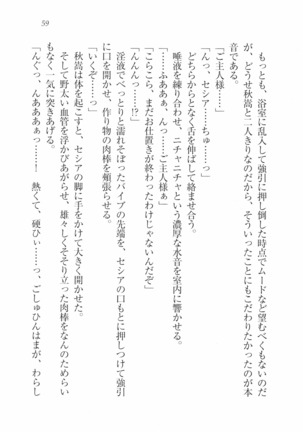 59
もっとも、浴室に乱入して強引に押し倒した時点でムードなど望むべくもないのだ
が、どうせ秋嵩と二人きりなのだから、そういったことにもこだわりたかったのが本
音である。
「ご主人様……」
「んっ、セシア……ちゅ……っ」
どちらからとなく舌を伸ばして絡ませ合う。
唾液を練り合わせ、ニチャニチャという濃厚な水音を室内に響かせる。
「……ふああぁ、んっ……ご主人様ぁ」
「こらこら、まだお仕置きが終わったわけじゃないんだぞ」
「んんんっ……!?」
淫液でべっとりと濡れそぼったバイブの先端を、セシアの口もとに押しつけて強引
に口を開かせ、作り物の肉棒を頬張らせる。
「いくぞ……っ」
秋嵩は体を起こすと、セシアの脚に手をかけて大きく開かせた。
そして野太い血管を浮かびあがらせ、雄々しくそそり立った肉棒をなんのためらい
もなく一気に突きあげる。
「んぐっ、んあああぁっ……！　熱くて、硬ひぃ……っ、ごしゅひんはまが、わらし